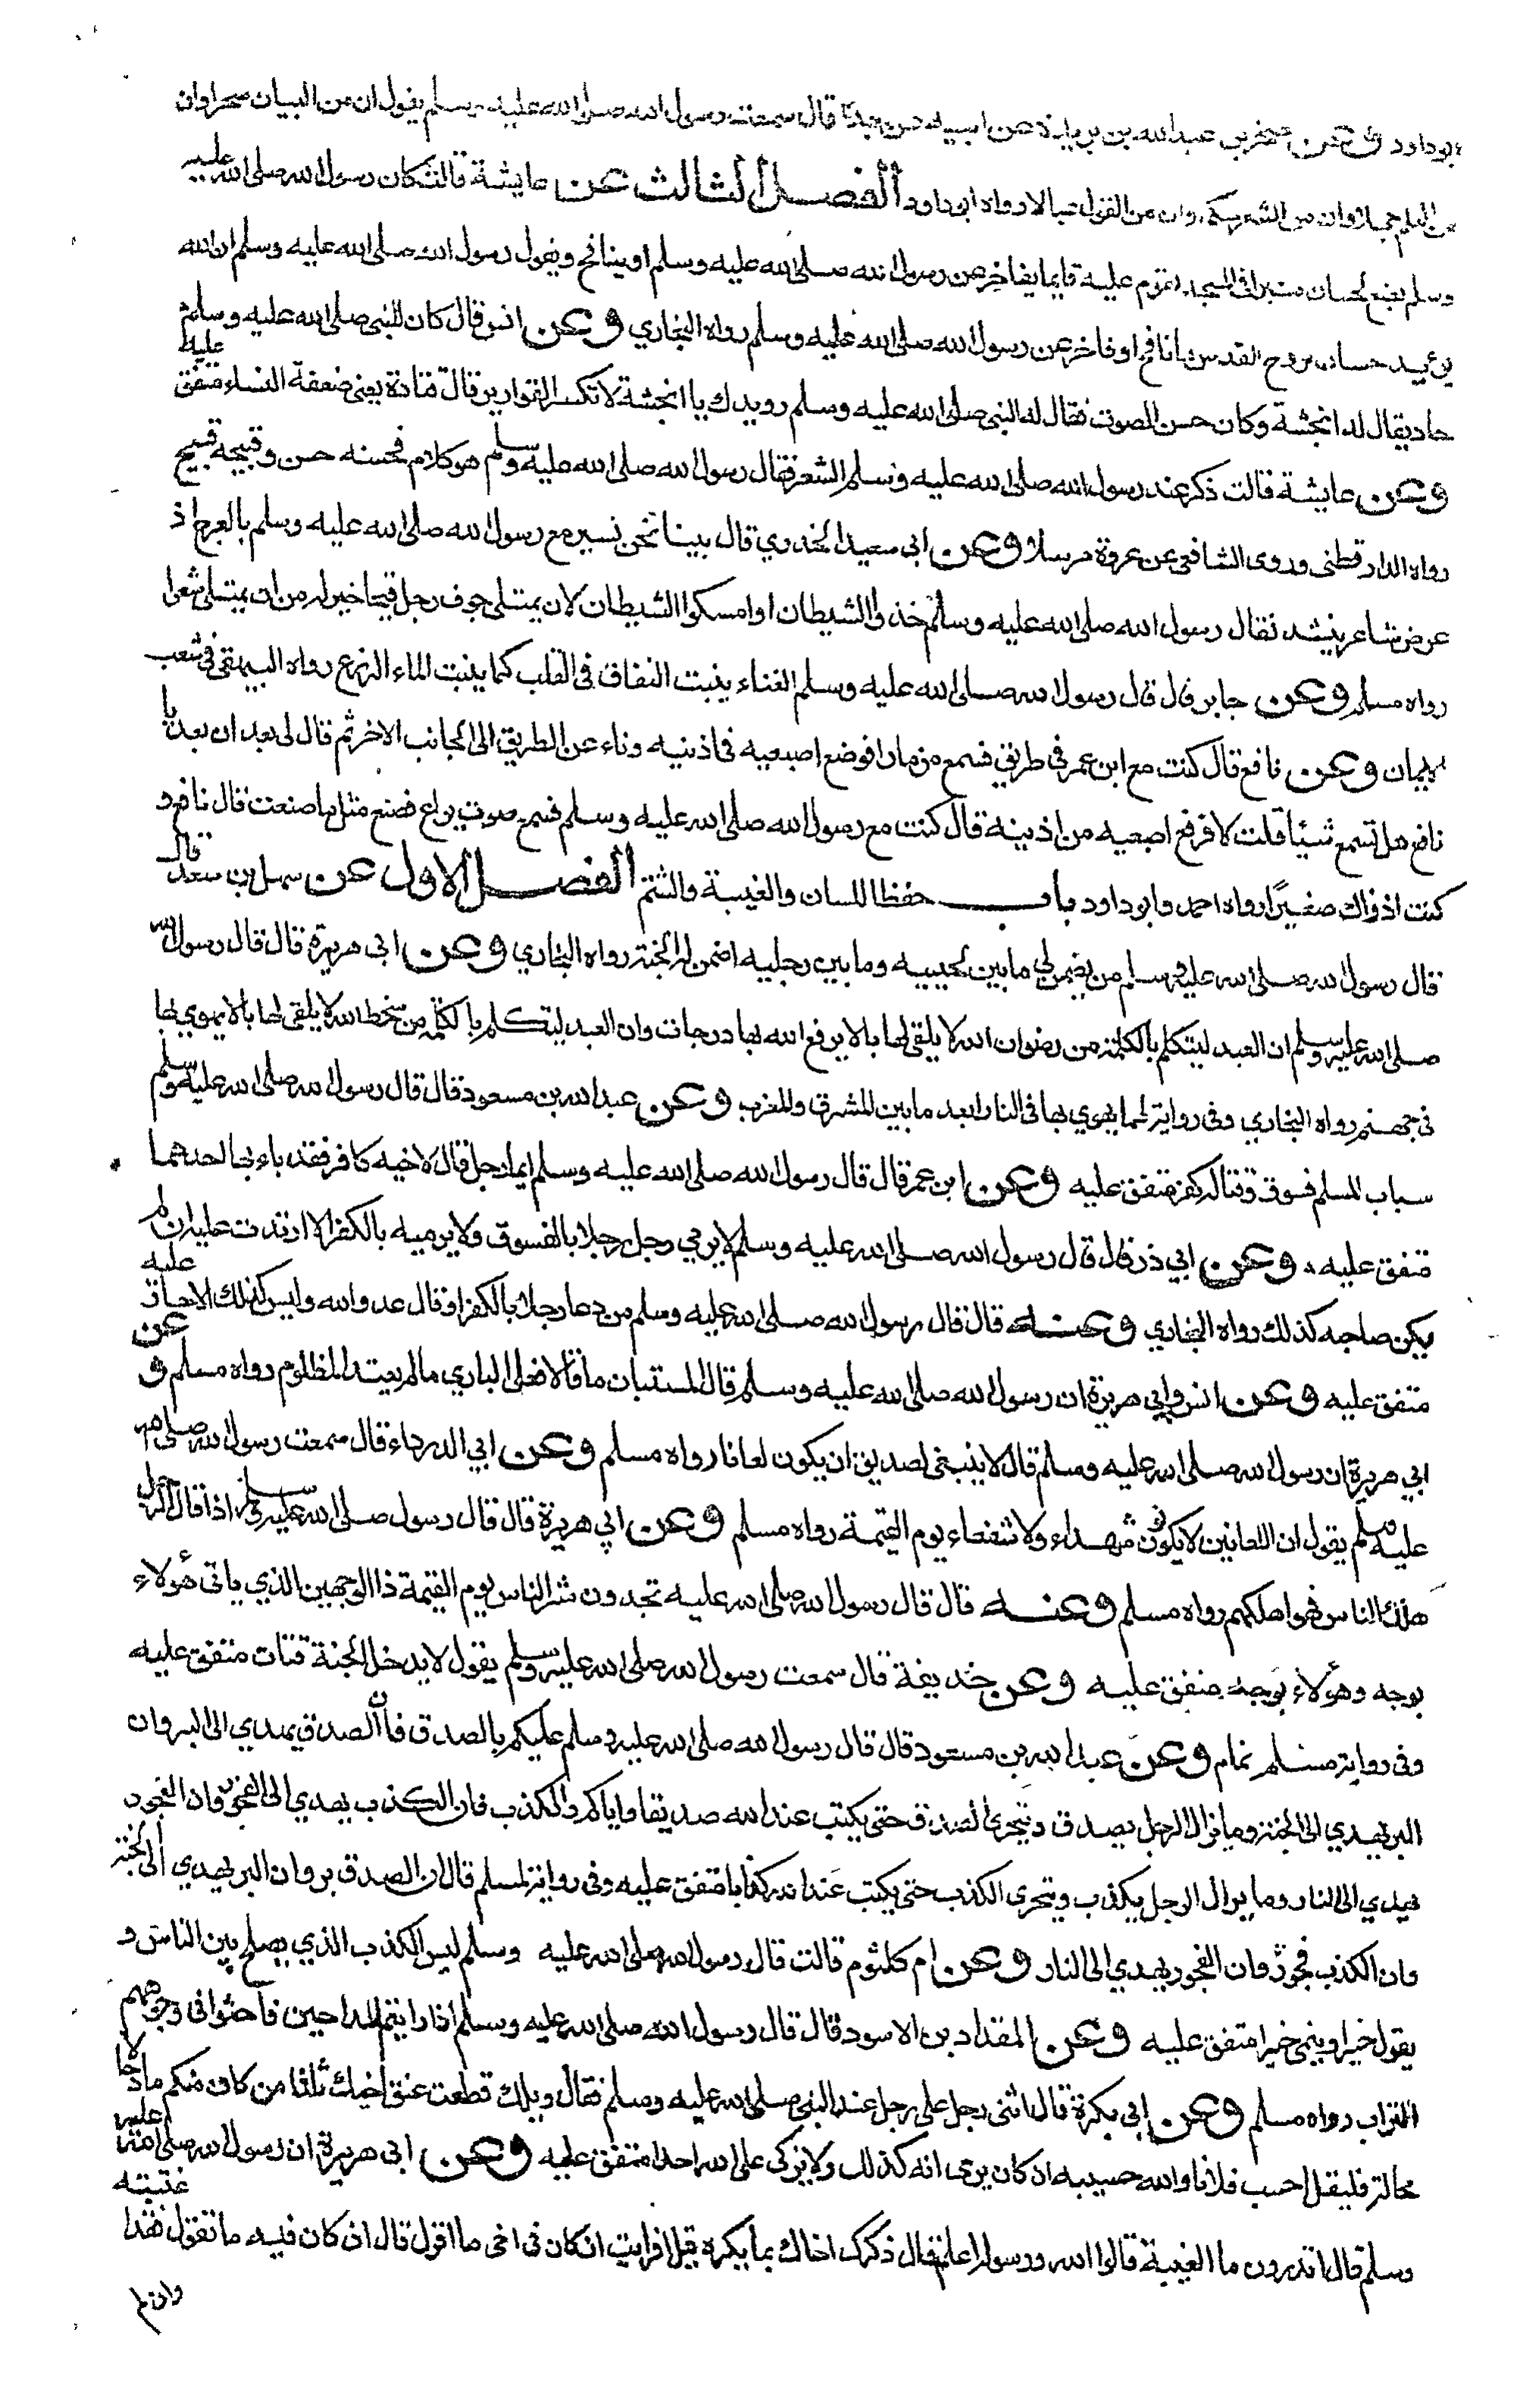 ابوداود وعن صخر بن عبدالله بن بريدة عن ابيه عن جده قال سمعت رسول الله صلى الله عليه وسلم يقول ان من البيان سحرا وان
من العلم جهلا وان من الشعر حكما وان من القول عيالا رواه ابوداود الفصل الثالث عن عايشة قالت كان رسول الله صلى الله عليه
وسلم يضع لحسان منبرا فى المسجد يقوم عليه قايما يفاخر عن رسول الله صلى الله عليه وسلم او ينافح ويقول رسول الله صلى الله عليه وسلم ان الله
يؤيد حسان بروح القدس ما نافح او فاخر عن رسول الله صلى الله عليه وسلم رواه البخاري وعن انس قال كان للنبى صلى الله عليه وسلم
حاد يقال له انجشة وكان حسن الصوت فقال له النبى صلى الله عليه وسلم رويدك يا انجشة لا تكسر القوارير قال قتادة يعنى ضعفة النساء متفق عليه
وعن عايشة قالت ذكر عند رسول الله صلى الله عليه وسلم الشعر فقال رسول الله صلى الله عليه وسلم هو كلام فحسنه حسن وقبيحه قبيح
رواه الدارقطنى وروى الشافعى عن عروة مرسلا وعن ابى سعيد الخدري قال بينا نحن نسير مع رسول الله صلى الله عليه وسلم بالعرج اذ
عرض شاعر ينشد فقال رسول الله صلى الله عليه وسلم خذوا الشيطان او امسكوا الشيطان لان يمتلى جوف رجل قيحا خير له من ان يمتلى شعرا
رواه مسلم وعن جابر قال قال رسول الله صلى الله عليه وسلم الغناء ينبت النفاق فى القلب كما ينبت الماء الزرع رواه البيهقى فى شعب
الايمان وعن نافع قال كنت مع ابن عمر فى طريق فسمع مزمارا فوضع اصبعيه فى اذنيه وناء عن الطريق الى الجانب الاخر ثم قال لى بعد ان بعد يا
نافع هل تسمع شيئا قلت لا فرفع اصبعيه من اذنيه قال كنت مع رسول الله صلى الله عليه وسلم فسمع صوت يراع فصنع مثل ما صنعت قال نافع و
كنت اذ ذاك صغيرا رواه احمد وابو داود باب حفظ اللسان والغيبة والشتم الفصل الاول عن سهل بن سعد قال
قال رسول الله صلى الله عليه وسلم من يضمن لى ما بين لحييه وما بين رجليه اضمن له الجنة رواه البخاري وعن ابى هريرة قال قال رسول الله
صلى الله عليه وسلم ان العبد ليتكلم بالكلمة من رضوان الله لا يلقى لها بالا يرفع الله بها درجات وان العبد ليتكلم بالكلمة من سخط الله لا يلقى لها بالا يهوي بها
فى جهنم رواه البخاري وفى رواية لهما يهوي بها فى النار ابعد ما بين المشرق والمغرب وعن عبدالله بن مسعود قال قال رسول الله صلى الله عليه وسلم
سباب المسلم فسوق وقتاله كفر متفق عليه وعن ابن عمر قال قال رسول الله صلى الله عليه وسلم ايما رجل قال لاخيه كافر فقد باء بها احدهما
متفق عليه وعن ابي ذر قال قال رسول الله صلى الله عليه وسلم لا يرمي رجل رجلا بالفسوق ولا يرميه بالكفر الا ارتدت عليه ان لم
يكن صاحبه كذلك رواه البخاري وعنه قال قال رسول الله صلى الله عليه وسلم من دعا رجلا بالكفر او قال عدو الله وليس كذلك الا حار عليه
متفق عليه وعن انس وابي هريرة ان رسول الله صلى الله عليه وسلم قال المستبان ما قالا فعلى البادي مالم يعتد المظلوم رواه مسلم وعن
ابي هريرة ان رسول الله صلى الله عليه وسلم قال لا ينبغى لصديق ان يكون لعانا رواه مسلم وعن ابي الدرداء قال سمعت رسول الله صلى الله
عليه وسلم يقول ان اللعانين لا يكونون شهداء ولا شفعاء يوم القيمة رواه مسلم وعن ابي هريرة قال قال رسول صلى الله عليه وسلم اذا قال الرجل
هلك الناس فهو اهلكهم رواه مسلم وعنه قال قال رسول الله صلى الله عليه تجدون شر الناس يوم القيمة ذا الوجهين الذي ياتى هؤلاء
بوجه وهؤلاء بوجه متفق عليه وعن حذيفة قال سمعت رسول الله صلى الله عليه وسلم يقول لا يدخل الجنة قتات متفق عليه
وفى رواية مسلم نمام وعن عبدالله بن مسعود قال قال رسول الله صلى الله عليه وسلم عليكم بالصدق فان الصدق يهدي الى البر وان
البر يهدي الى الجنة وما يزال الرجل يصدق ويتحرى الصدق حتى يكتب عند الله صديقا واياكم والكذب فان الكذب يهدي الى الفجور وان الفجور
يهدي الى النار وما يزال الرجل يكذب ويتحرى الكذب حتى يكتب عند الله كذابا متفق عليه وفى رواية لمسلم قال ان الصدق بر وان البر يهدي الى الجنة
وان الكذب فجور وان الفجور يهدي الى النار وعن ام كلثوم قالت قال رسول الله صلى الله عليه وسلم ليس الكذب الذي يصلح بين الناس و
يقول خيرا وينمى خيرا متفق عليه وعن المقداد بن الاسود قال قال رسول الله صلى الله عليه وسلم اذا رايتم المداحين فاحثوا فى وجوههم
التراب رواه مسلم وعن ابى بكرة قال اثنى رجل على رجل عند النبى صلى الله عليه وسلم فقال ويلك قطعت عنق اخيك ثلثا من كان منكم مادحا لا
محالة فليقل احسب فلانا والله حسيبه ان كان يرى انه كذلك ولا يزكى على الله احدا متفق عليه وعن ابى هريرة ان رسول الله صلى الله عليه
وسلم قال اتدرون ما الغيبة قالوا الله ورسوله اعلم قال ذكرك اخاك بما يكره قيل افرايت ان كان فى اخى ما اقول قال ان كان فيه ما تقول فقد اغتبته
وان لم